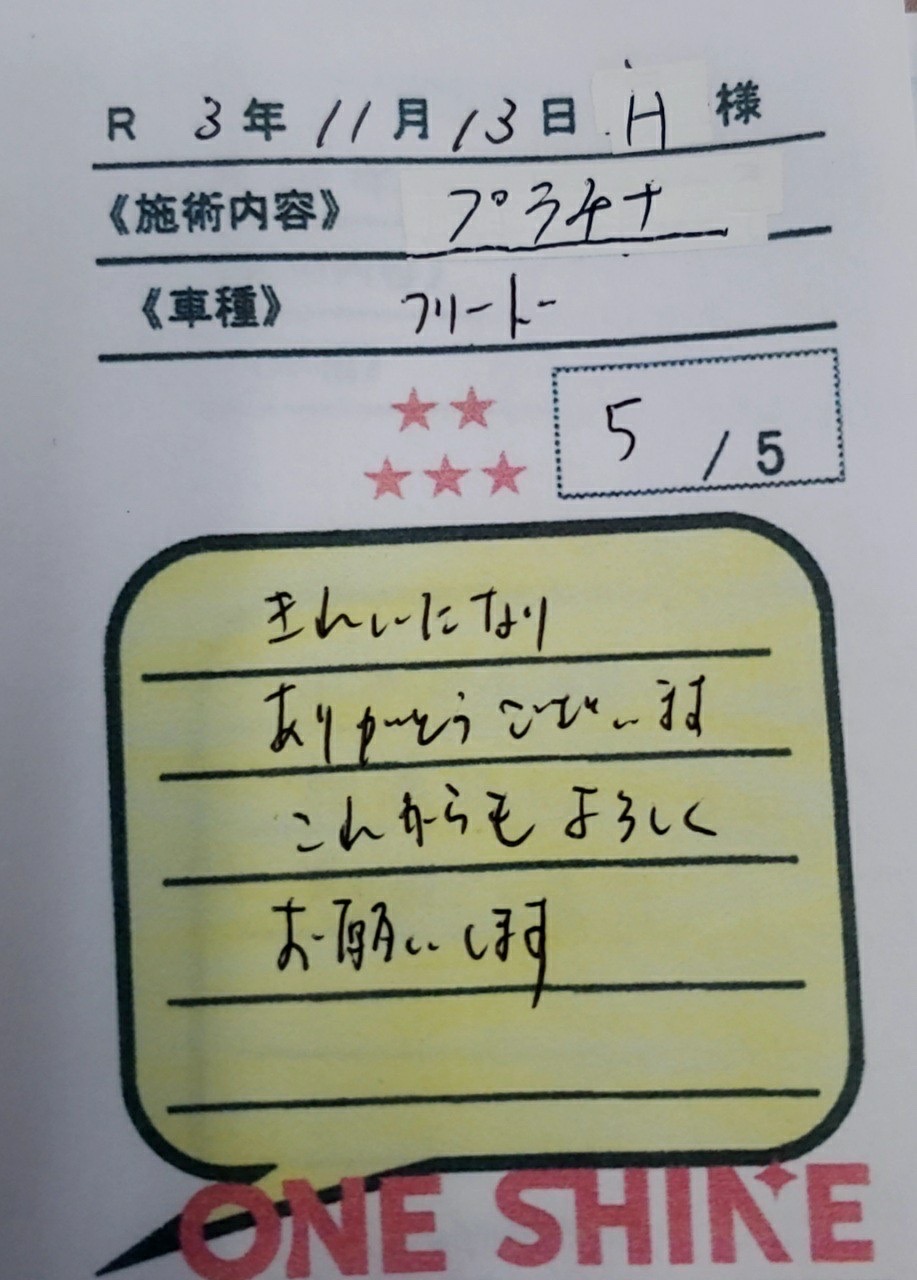 R 3年 11月 13日 H 様
《施術内容》 プラチナ
《車種》 フリード
5 / 5
きれいになり
ありがとうございます
これからもよろしく
お願いします
ONE SHINE